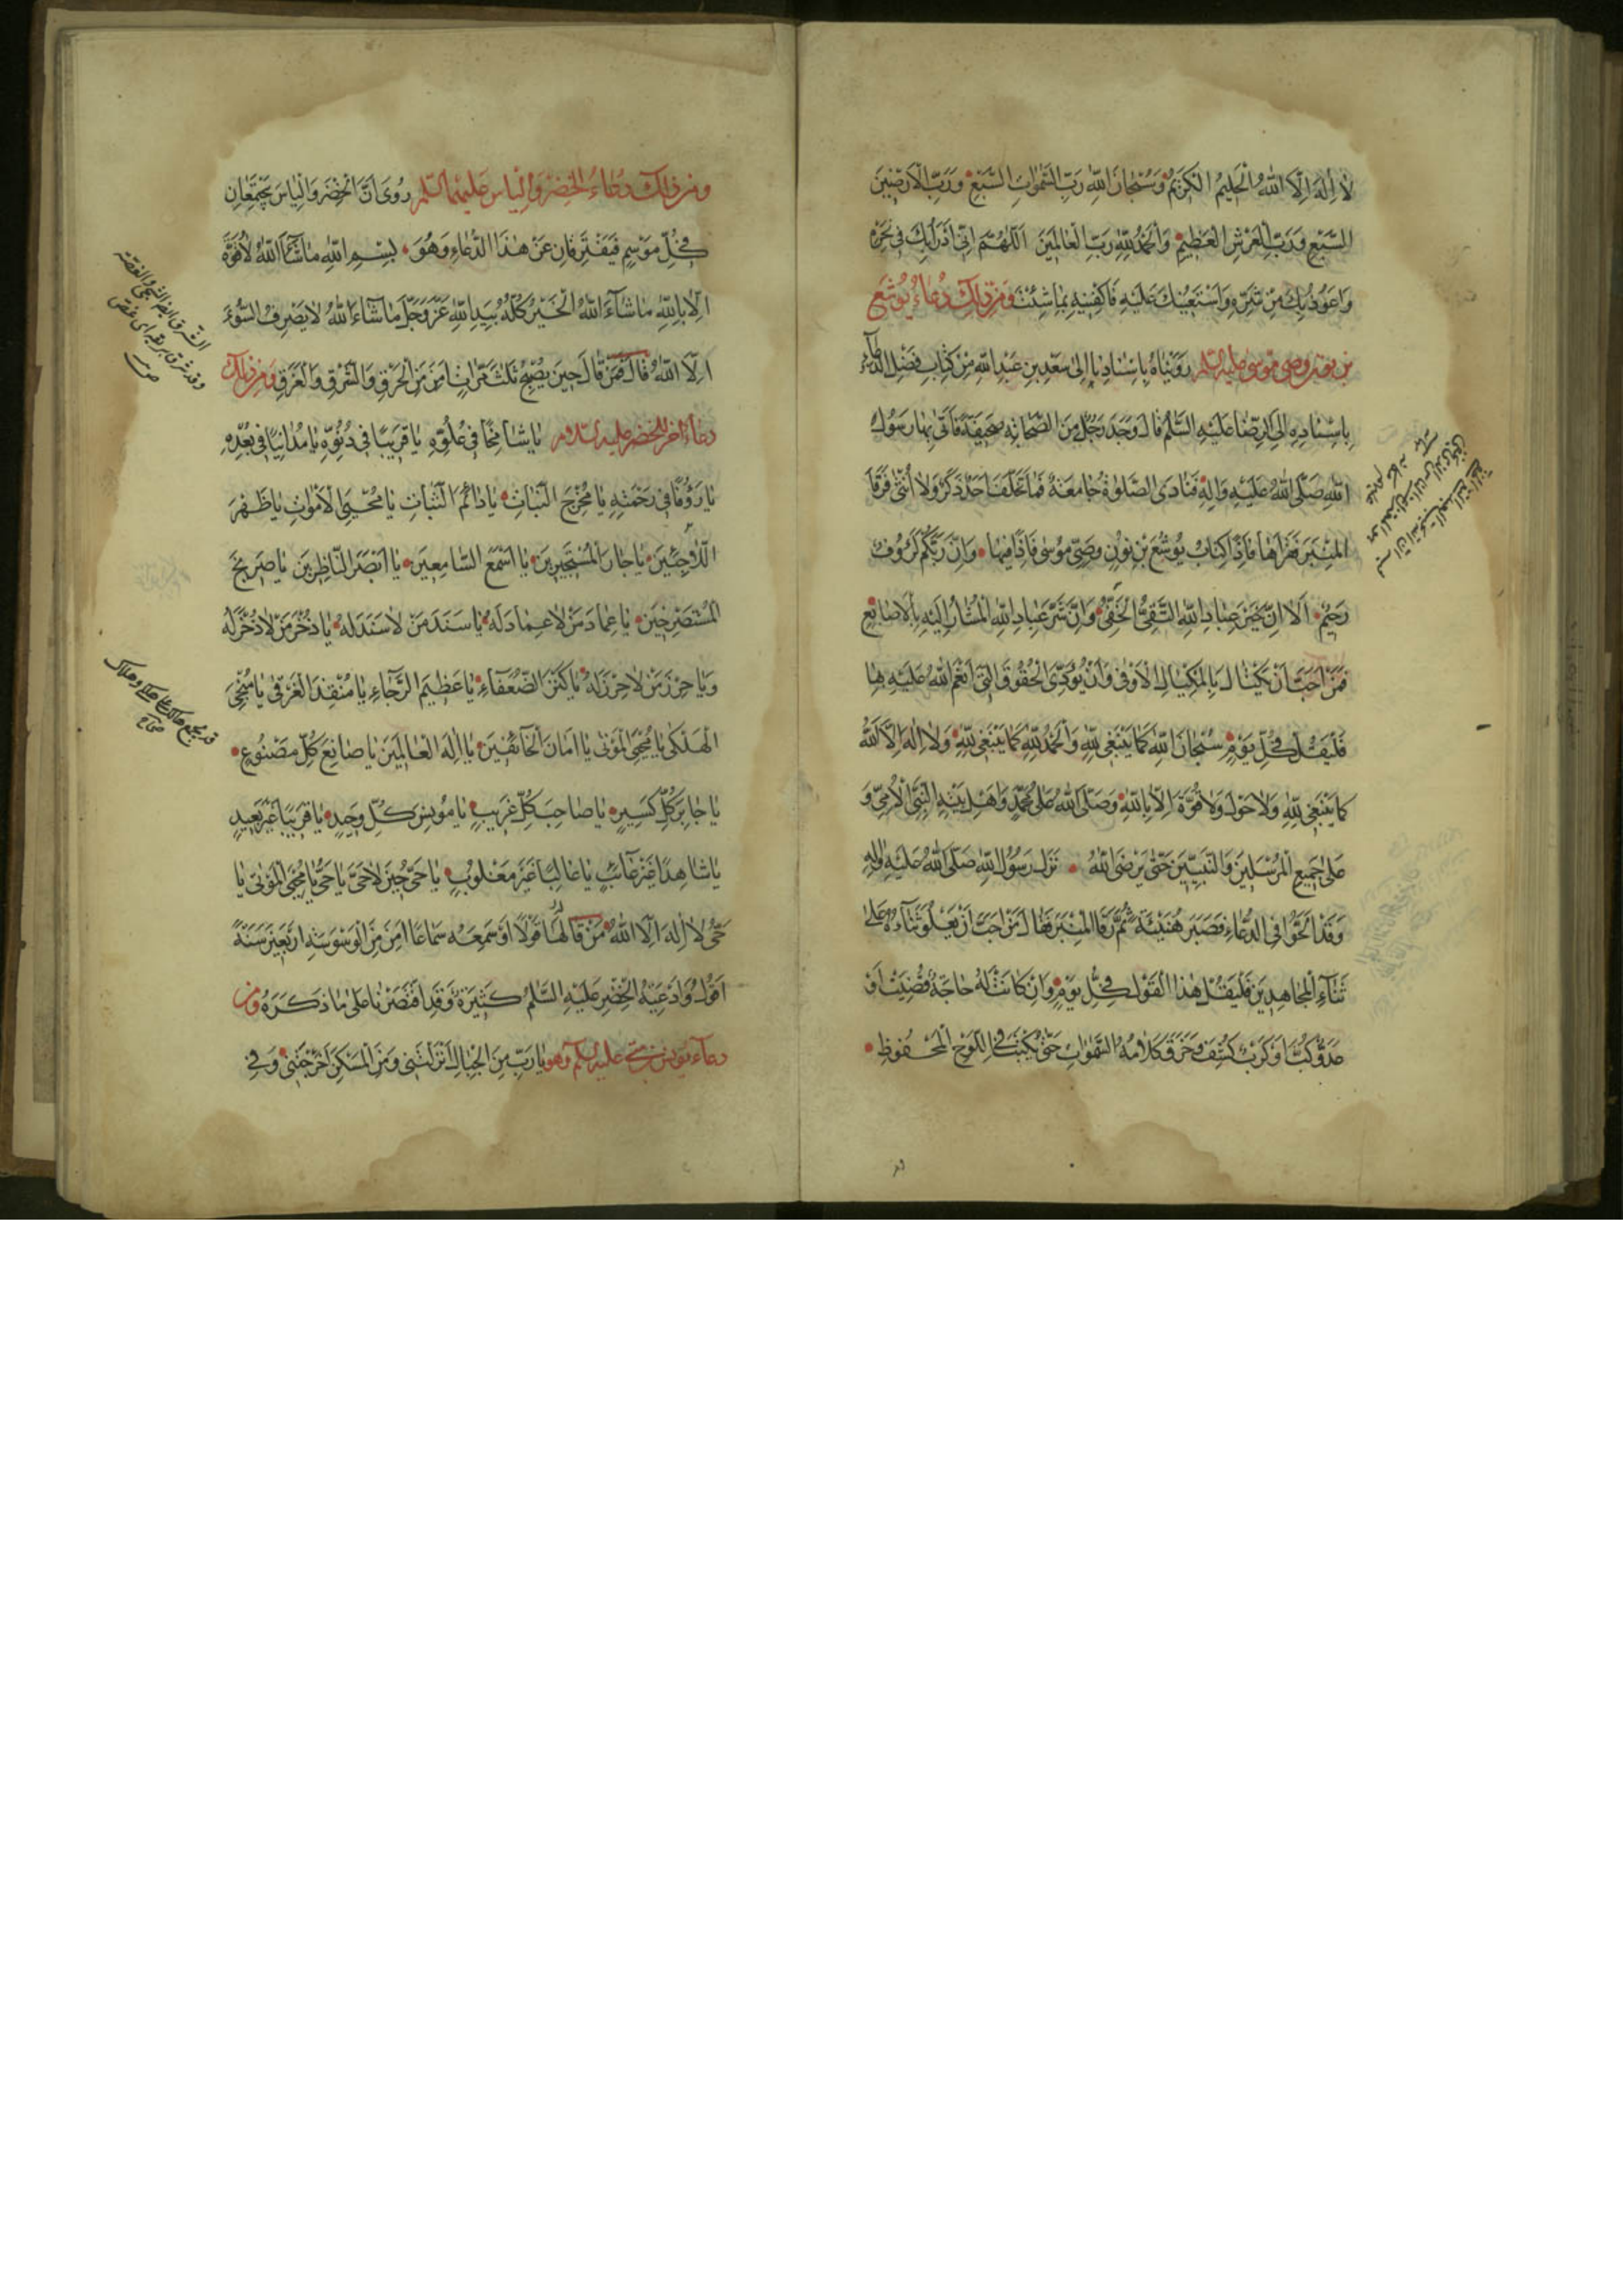 لا اِلٰهَ اِلَّا اللّٰهُ الْحَلِيمُ الْكَرِيمُ وَسُبْحَانَ اللّٰهِ رَبِّ السَّمٰوَاتِ السَّبْعِ وَرَبِّ الْاَرَضِينَ
السَّبْعِ وَرَبِّ الْعَرْشِ الْعَظِيمِ وَالْحَمْدُ لِلّٰهِ رَبِّ الْعَالَمِينَ اَللّٰهُمَّ اِنِّي اَدْرَاُ بِكَ فِي نَحْرِهِ
وَاَعُوذُ بِكَ مِنْ شَرِّهِ وَاَسْتَعِينُكَ عَلَيْهِ فَاكْفِنِيهِ بِمَا شِئْتَ وَمِنْ ذٰلِكَ دُعَاءُ يُوشَعَ
بن نون وصي موسى عليه السلم رَوَيْنَاهُ بِاِسْنَادِنَا اِلٰى سَعْدِ بْنِ عَبْدِ اللّٰهِ مِنْ كِتَابِ فَضْلِ الدُّعَاءِ
بِاِسْنَادِهِ اِلَى الرِّضَا عَلَيْهِ السَّلٰمُ قَالَ وَجَدَ رَجُلٌ مِنَ الصَّحَابَةِ صَحِيفَةً فَاَتٰى بِهَا رَسُولَ
اللّٰهِ صَلَّى اللّٰهُ عَلَيْهِ وَاٰلِهِ فَنَادَى الصَّلٰوةُ جَامِعَةً فَمَا تَخَلَّفَ اَحَدٌ ذَكَرٌ وَلَا اُنْثٰى فَرَقَا
الْمِنْبَرَ فَقَرَاَهَا فَاِذَا كِتَابُ يُوشَعَ بْنِ نُونٍ وَصِيِّ مُوسٰى فَاِذَا فِيهَا وَاِنَّ رَبَّكُمْ لَرَؤُوفٌ
رَحِيمٌ اَلَا اِنَّ خَيْرَ عِبَادِ اللّٰهِ التَّقِيُّ الْخَفِيُّ وَاِنَّ شَرَّ عِبَادِ اللّٰهِ الْمُشَارُ اِلَيْهِ بِالْاَصَابِعِ
فَمَنْ اَحَبَّ اَنْ يَكْتَالَ بِالْمِكْيَالِ الْاَوْفٰى وَاَنْ يُؤَدِّيَ الْحُقُوقَ الَّتِي اَنْعَمَ اللّٰهُ عَلَيْهِ بِهَا
فَلْيَقُلْ فِي كُلِّ يَوْمٍ سُبْحَانَ اللّٰهِ كَمَا يَنْبَغِي لِلّٰهِ وَالْحَمْدُ لِلّٰهِ كَمَا يَنْبَغِي لِلّٰهِ وَلَا اِلٰهَ اِلَّا اللّٰهُ
كَمَا يَنْبَغِي لِلّٰهِ وَلَا حَوْلَ وَلَا قُوَّةَ اِلَّا بِاللّٰهِ وَصَلَّى اللّٰهُ عَلٰى مُحَمَّدٍ وَاَهْلِ بَيْتِهِ النَّبِيِّ الْاُمِّيِّ وَ
عَلٰى جَمِيعِ الْمُرْسَلِينَ وَالنَّبِيِّينَ حَتّٰى يَرْضَى اللّٰهُ نَزَلَ رَسُولُ اللّٰهِ صَلَّى اللّٰهُ عَلَيْهِ وَاٰلِهِ
وَقَدْ اَلَحُّوا فِي الدُّعَاءِ فَصَبَرَ هُنَيْئَةً ثُمَّ رَقَا الْمِنْبَرَ فَقَالَ مَنْ اَحَبَّ اَنْ يَعْلُوَ ثَنَاؤُهُ عَلٰى
ثَنَاءِ الْمُجَاهِدِينَ فَلْيَقُلْ هٰذَا الْقَوْلَ فِي كُلِّ يَوْمٍ وَاِنْ كَانَتْ لَهُ حَاجَةٌ قُضِيَتْ اَوْ
عَدُوٌّ كُبِتَ اَوْ كَرْبٌ كُشِفَ وَخَرَقَ كَلَامُهُ السَّمٰوَاتِ حَتّٰى يُكْتَبَ فِي اللَّوْحِ الْمَحْفُوظِ
ومن ذلك دعاء الخضر والياس عليهما السلم رُوِيَ اَنَّ الْخِضْرَ وَالْيَاسَ يَجْتَمِعَانِ
فِي كُلِّ مَوْسِمٍ فَيَفْتَرِقَانِ عَنْ هٰذَا الدُّعَاءِ وَهُوَ بِسْمِ اللّٰهِ مَا شَاءَ اللّٰهُ لَا قُوَّةَ
اِلَّا بِاللّٰهِ مَا شَاءَ اللّٰهُ الْخَيْرُ كُلُّهُ بِيَدِ اللّٰهِ عَزَّ وَجَلَّ مَا شَاءَ اللّٰهُ لَا يَصْرِفُ السُّوءَ
اِلَّا اللّٰهُ قَالَ فَمَنْ قَالَ حِينَ يُصْبِحُ ثَلٰثَ مَرَّاتٍ اَمِنَ مِنَ الْحَرَقِ وَالشَّرَقِ وَالْغَرَقِ وَمن ذلك
دعاء اخر للخضر عليه السلام يَا شَامِخًا فِي عُلُوِّهِ يَا قَرِيبًا فِي دُنُوِّهِ يَا مُدَانِيًا فِي بُعْدِهِ
يَا رَؤُوفًا فِي رَحْمَتِهِ يَا مُخْرِجَ النَّبَاتِ يَا دَائِمَ الثَّبَاتِ يَا مُحْيِيَ الْاَمْوَاتِ يَا ظَهْرَ
اللَّاجِئِينَ يَا جَارَ الْمُسْتَجِيرِينَ يَا اَسْمَعَ السَّامِعِينَ يَا اَبْصَرَ النَّاظِرِينَ يَا صَرِيخَ
الْمُسْتَصْرِخِينَ يَا عِمَادَ مَنْ لَا عِمَادَ لَهُ يَا سَنَدَ مَنْ لَا سَنَدَ لَهُ يَا ذُخْرَ مَنْ لَا ذُخْرَ لَهُ
وَيَا حِرْزَ مَنْ لَا حِرْزَ لَهُ يَا كَنْزَ الضُّعَفَاءِ يَا عَظِيمَ الرَّجَاءِ يَا مُنْقِذَ الْغَرْقٰى يَا مُنْجِيَ
الْهَلْكٰى يَا مُحْيِيَ الْمَوْتٰى يَا اَمَانَ الْخَائِفِينَ يَا اِلٰهَ الْعَالَمِينَ يَا صَانِعَ كُلِّ مَصْنُوعٍ
يَا جَابِرَ كُلِّ كَسِيرٍ يَا صَاحِبَ كُلِّ غَرِيبٍ يَا مُونِسَ كُلِّ وَحِيدٍ يَا قَرِيبًا غَيْرَ بَعِيدٍ
يَا شَاهِدًا غَيْرَ غَائِبٍ يَا غَالِبًا غَيْرَ مَغْلُوبٍ يَا حَيُّ حِينَ لَا حَيَّ يَا حَيُّ يَا مُحْيِيَ الْمَوْتٰى يَا
حَيُّ لَا اِلٰهَ اِلَّا اللّٰهُ مَنْ قَالَهَا قَوْلًا اَوْ سَمِعَهُ سَمَاعًا اَمِنَ مِنَ الْوَسْوَسَةِ اَرْبَعِينَ سَنَةً
اَقُولُ وَاَدْعِيَةُ الْخِضْرِ عَلَيْهِ السَّلٰمُ كَثِيرَةٌ وَقَدِ اقْتَصَرْنَا عَلٰى مَا ذَكَرَهُ ومن
دعاء يونس بن متى عليه السلم وهو يَا رَبِّ مِنَ الْجِبَالِ اَنْزَلْتَنِي وَمِنَ الْمَسْكَنِ اَخْرَجْتَنِي وَفِي